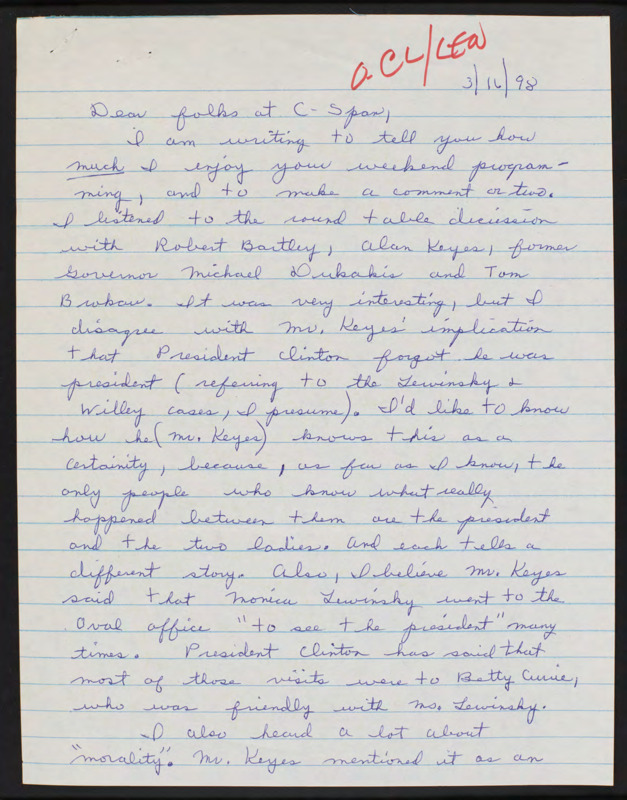 O. CL/LEW
3/16/98
Dear folks at C-Span,
I am writing to tell you how
much I enjoy your weekend program-
ming, and to make a comment or two.
I listened to the round table dicussion
with Robert Bartley, Alan Keyes, former
Governor Michael Dukakis and Tom
Brokaw. It was very interesting, but I
disagree with Mr. Keyes' implication
that President Clinton forgot he was
president (refering to the Lewinsky &
Willey cases, I presume). I'd like to know
how he (Mr. Keyes) knows this as a
certainity, because, as far as I know, the
only people who know what really
happened between them are the president
and the two ladies. And each tells a
different story. Also, I believe Mr. Keyes
said that Monica Lewinsky went to the
Oval office "to see the president" many
times. President Clinton has said that
most of those visits were to Betty Currie,
who was friendly with Ms. Lewinsky.
I also heard a lot about
"morality". Mr. Keyes mentioned it as an